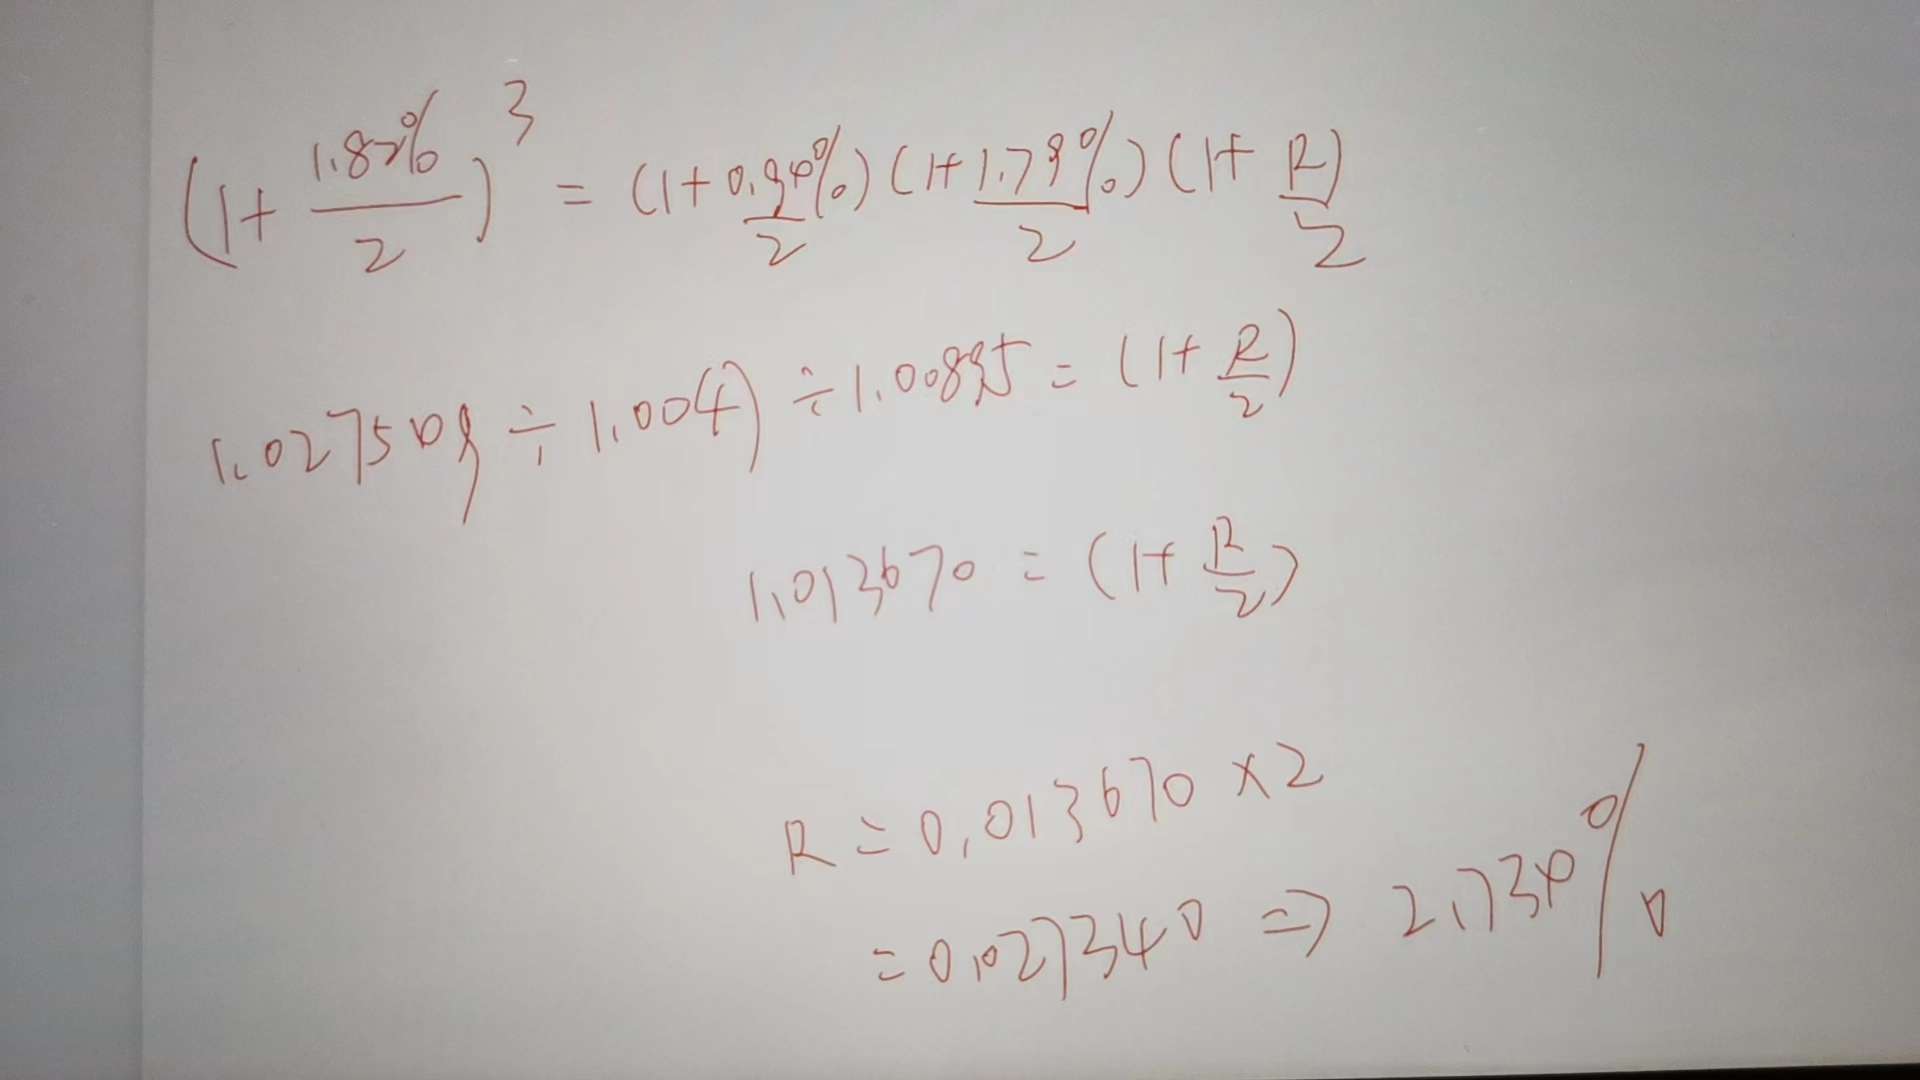 (1+ 1.82%/2)^3 = (1+0.94%/2) (1+1.79%/2) (1+ R/2)
1.027549 ÷ 1.0047 ÷ 1.00895 = (1+ R/2)
1.013670 = (1+ R/2)
R = 0.013670 × 2
= 0.027340 ⇒ 2.734%